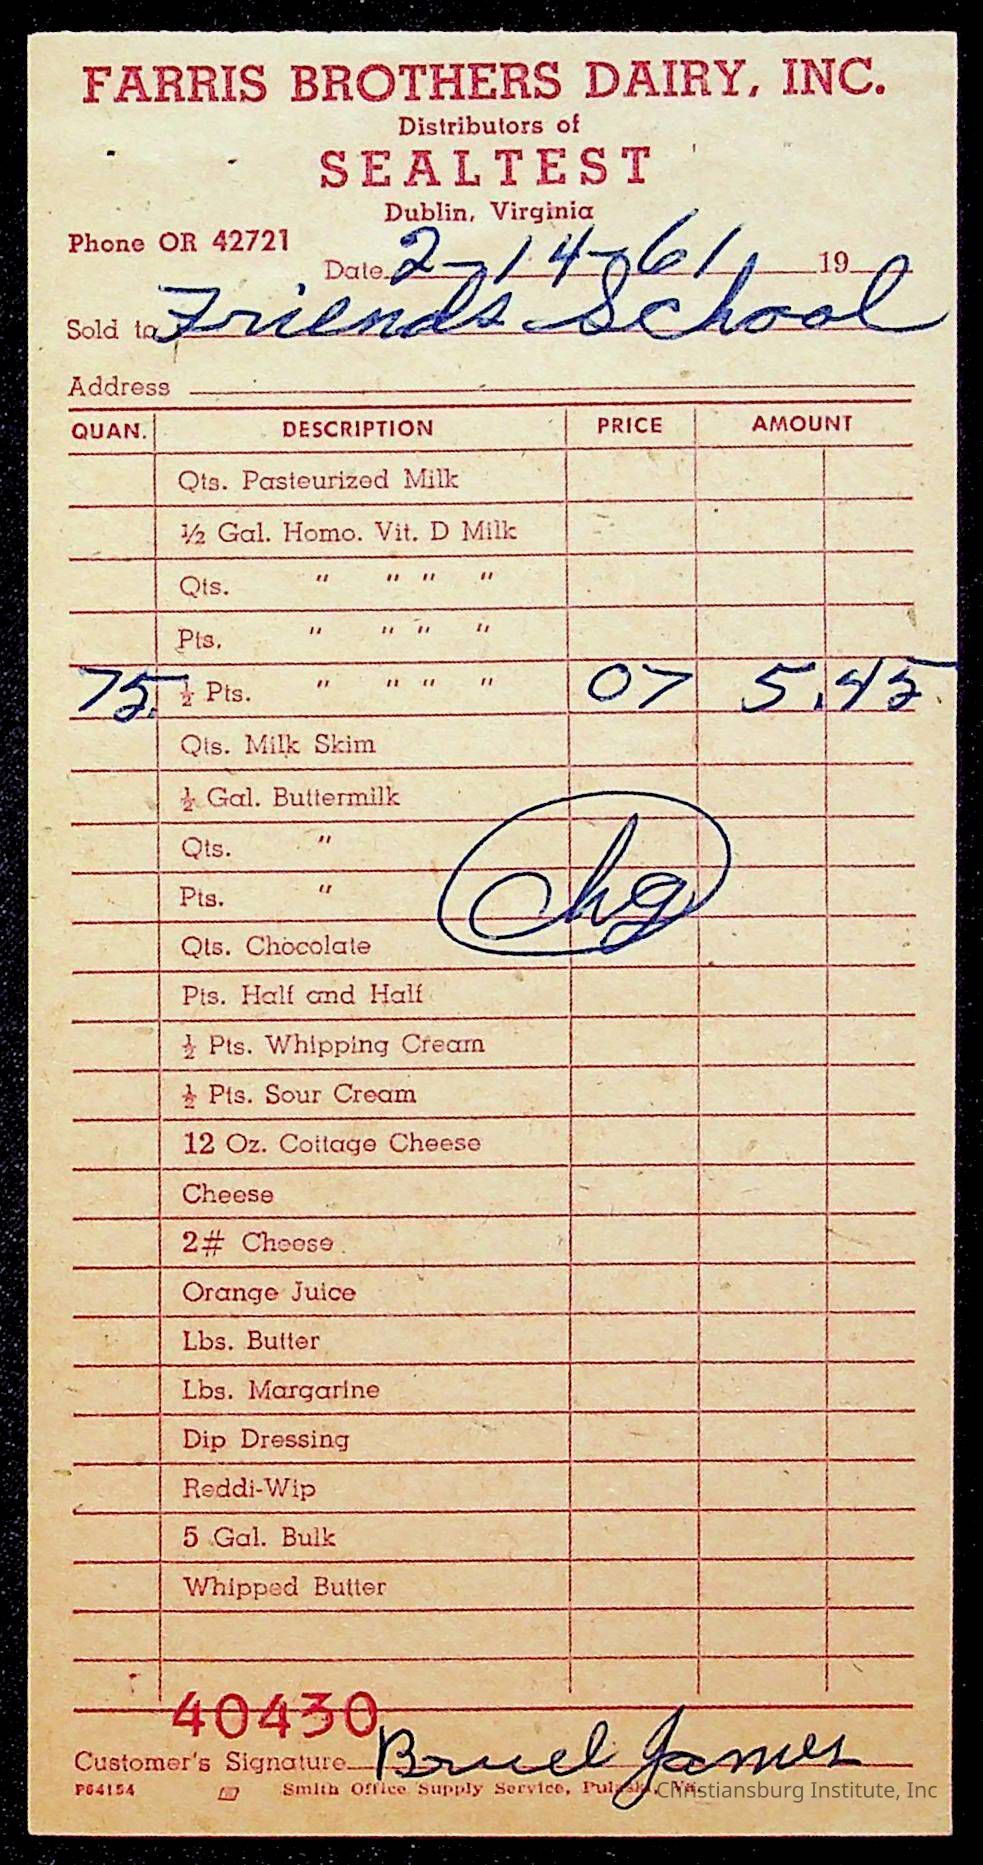 FARRIS BROTHERS DAIRY, INC.
Distributors of
SEALTEST
Dublin, Virginia
Phone OR 42721
Date 2-14-61 19
Sold to Friends School
Address
QUAN. DESCRIPTION PRICE AMOUNT
Qts. Pasteurized Milk
½ Gal. Homo. Vit. D Milk
Qts. " " " "
Pts. " " " "
75 ½ Pts. " " " " 07 5.45
Qts. Milk Skim
½ Gal. Buttermilk
Qts. "
Pts. "
chg
Qts. Chocolate
Pts. Half and Half
½ Pts. Whipping Cream
½ Pts. Sour Cream
12 Oz. Cottage Cheese
Cheese
2# Cheese
Orange Juice
Lbs. Butter
Lbs. Margarine
Dip Dressing
Reddi-Wip
5 Gal. Bulk
Whipped Butter
40430
Customer's Signature James
P64154 Smith Office Supply Service, Pulaski, Va.
Christiansburg Institute, Inc